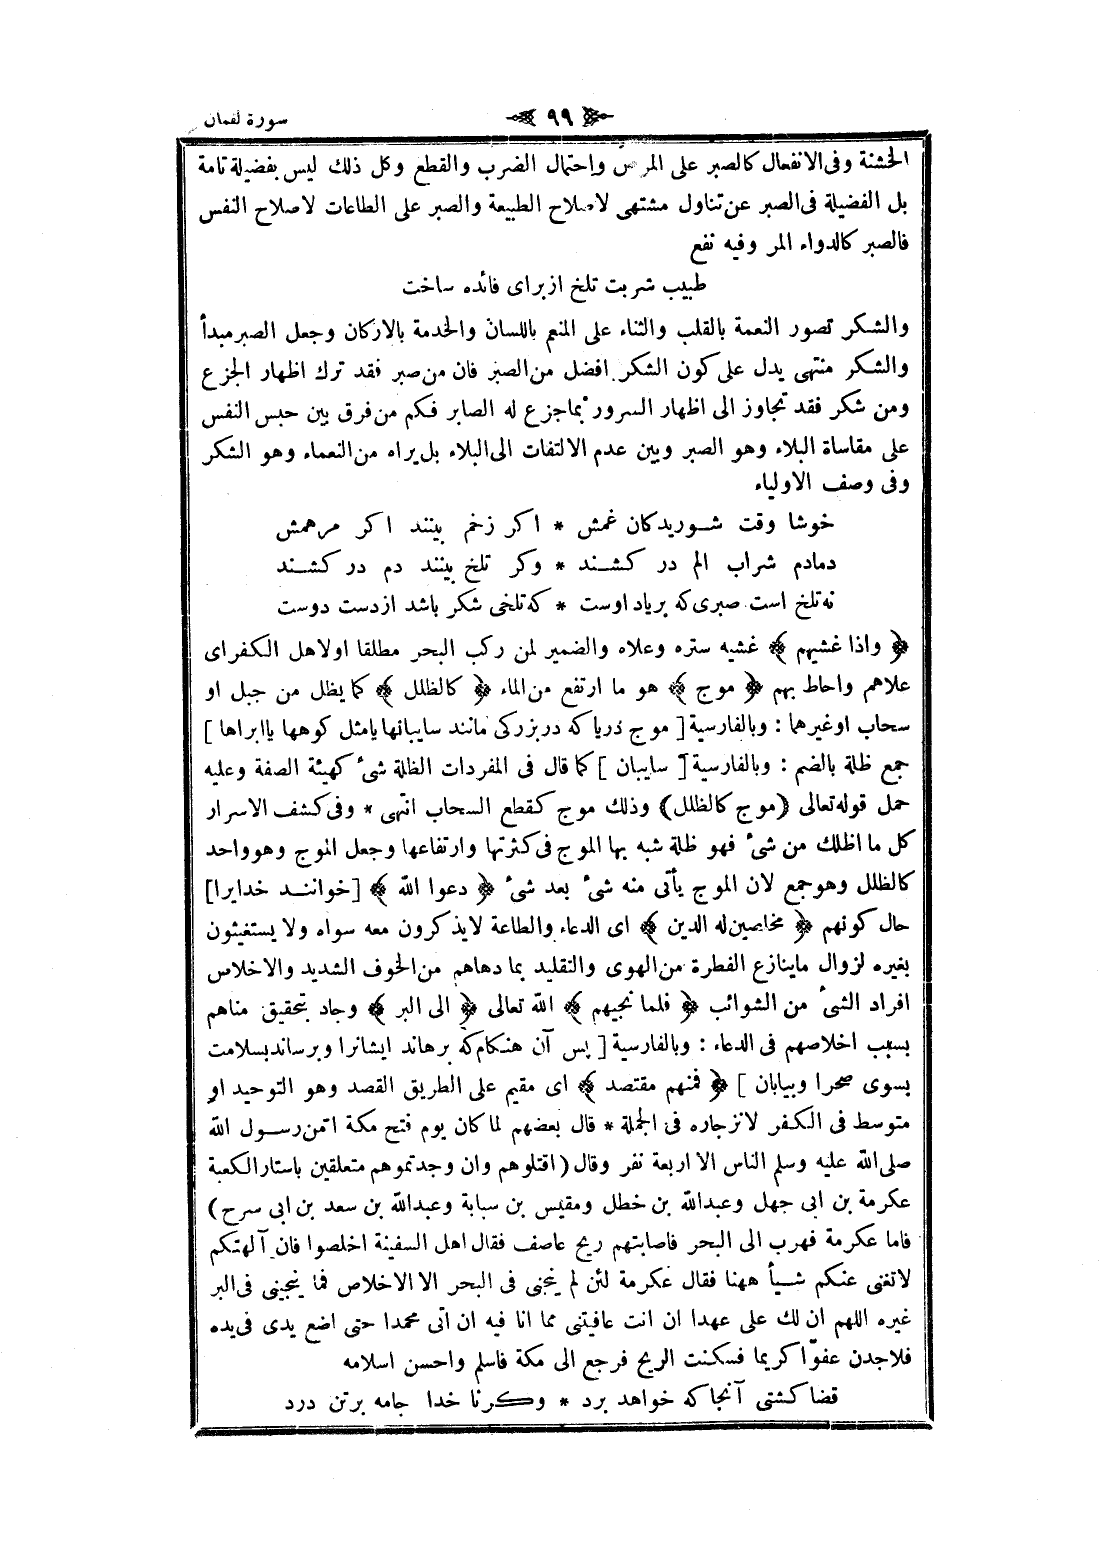 سورة لقمان
٩٩
الخشنة وفى الانفعال كالصبر على المرض واحتمال الضرب والقطع وكل ذلك ليس بفضيلة تامة
بل الفضيلة فى الصبر عن تناول مشتهى لاصلاح الطبيعة والصبر على الطاعات لاصلاح النفس
فالصبر كالدواء المر وفيه نفع
طبيب شربت تلخ از براى فائده ساخت
والشكر تصور النعمة بالقلب والثناء على المنعم باللسان والخدمة بالاركان وجعل الصبر مبدأ
والشكر منتهى يدل على كون الشكر افضل من الصبر فان من صبر فقد ترك اظهار الجزع
ومن شكر فقد تجاوز الى اظهار السرور بما جزع له الصابر فكم من فرق بين حبس النفس
على مقاساة البلاء وهو الصبر وبين عدم الالتفات الى البلاء بل يراه من النعماء وهو الشكر
وفى وصف الاولياء
خوشا وقت شوريدكان غمش * اكر زخم بينند اكر مرهمش
دمادم شراب الم در كشند * وكر تلخ بينند دم در كشند
نه تلخ است صبرى كه برياد اوست * كه تلخى شكر باشد از دست دوست
﴿ واذا غشيهم ﴾ غشيه ستره وعلاه والضمير لمن ركب البحر مطلقا اولاهل الكفر اى
علاهم واحاط بهم ﴿ موج ﴾ هو ما ارتفع من الماء ﴿ كالظلل ﴾ كما يظل من جبل او
سحاب اوغيرهما : وبالفارسية [ موج دريا كه در بزركى مانند سايبانها يامثل كوهها ياابراها ]
جمع ظلة بالضم : وبالفارسية [ سايبان ] كما قال فى المفردات الظلة شىء كهيئة الصفة وعليه
حمل قوله تعالى (موج كالظلل) وذلك موج كقطع السحاب انتهى * وفى كشف الاسرار
كل ما اظلك من شىء فهو ظلة شبه بها الموج فى كثرتها وارتفاعها وجعل الموج وهو واحد
كالظلل وهو جمع لان الموج يأتى منه شىء بعد شىء ﴿ دعوا الله ﴾ [خوانند خدايرا]
حال كونهم ﴿ مخلصين له الدين ﴾ اى الدعاء والطاعة لايذكرون معه سواه ولا يستغيثون
بغيره لزوال ماينازع الفطرة من الهوى والتقليد بما دهاهم من الخوف الشديد والاخلاص
افراد الشىء من الشوائب ﴿ فلما نجيهم ﴾ الله تعالى ﴿ الى البر ﴾ وجاد بتحقيق مناهم
بسبب اخلاصهم فى الدعاء : وبالفارسية [ پس آن هنكام كه برهاند ايشانرا وبرساند بسلامت
بسوى صحرا وبيابان ] ﴿ فمنهم مقتصد ﴾ اى مقيم على الطريق القصد وهو التوحيد او
متوسط فى الكفر لانزجاره فى الجملة * قال بعضهم لما كان يوم فتح مكة امن رسول الله
صلى الله عليه وسلم الناس الا اربعة نفر وقال (اقتلوهم وان وجدتموهم متعلقين باستار الكعبة
عكرمة بن ابى جهل وعبدالله بن خطل ومقيس بن سبابة وعبدالله بن سعد بن ابى سرح)
فاما عكرمة فهرب الى البحر فاصابتهم ريح عاصف فقال اهل السفينة اخلصوا فان آلهتكم
لاتغنى عنكم شيأ ههنا فقال عكرمة لئن لم ينجنى فى البحر الا الاخلاص فما ينجينى فى البر
غيره اللهم ان لك على عهدا ان انت عافيتنى مما انا فيه ان آتى محمدا حتى اضع يدى فى يده
فلاجدن عفوّا كريما فسكنت الريح فرجع الى مكة فاسلم واحسن اسلامه
قضا كشتى آنجا كه خواهد برد * وكر نا خدا جامه برتن درد